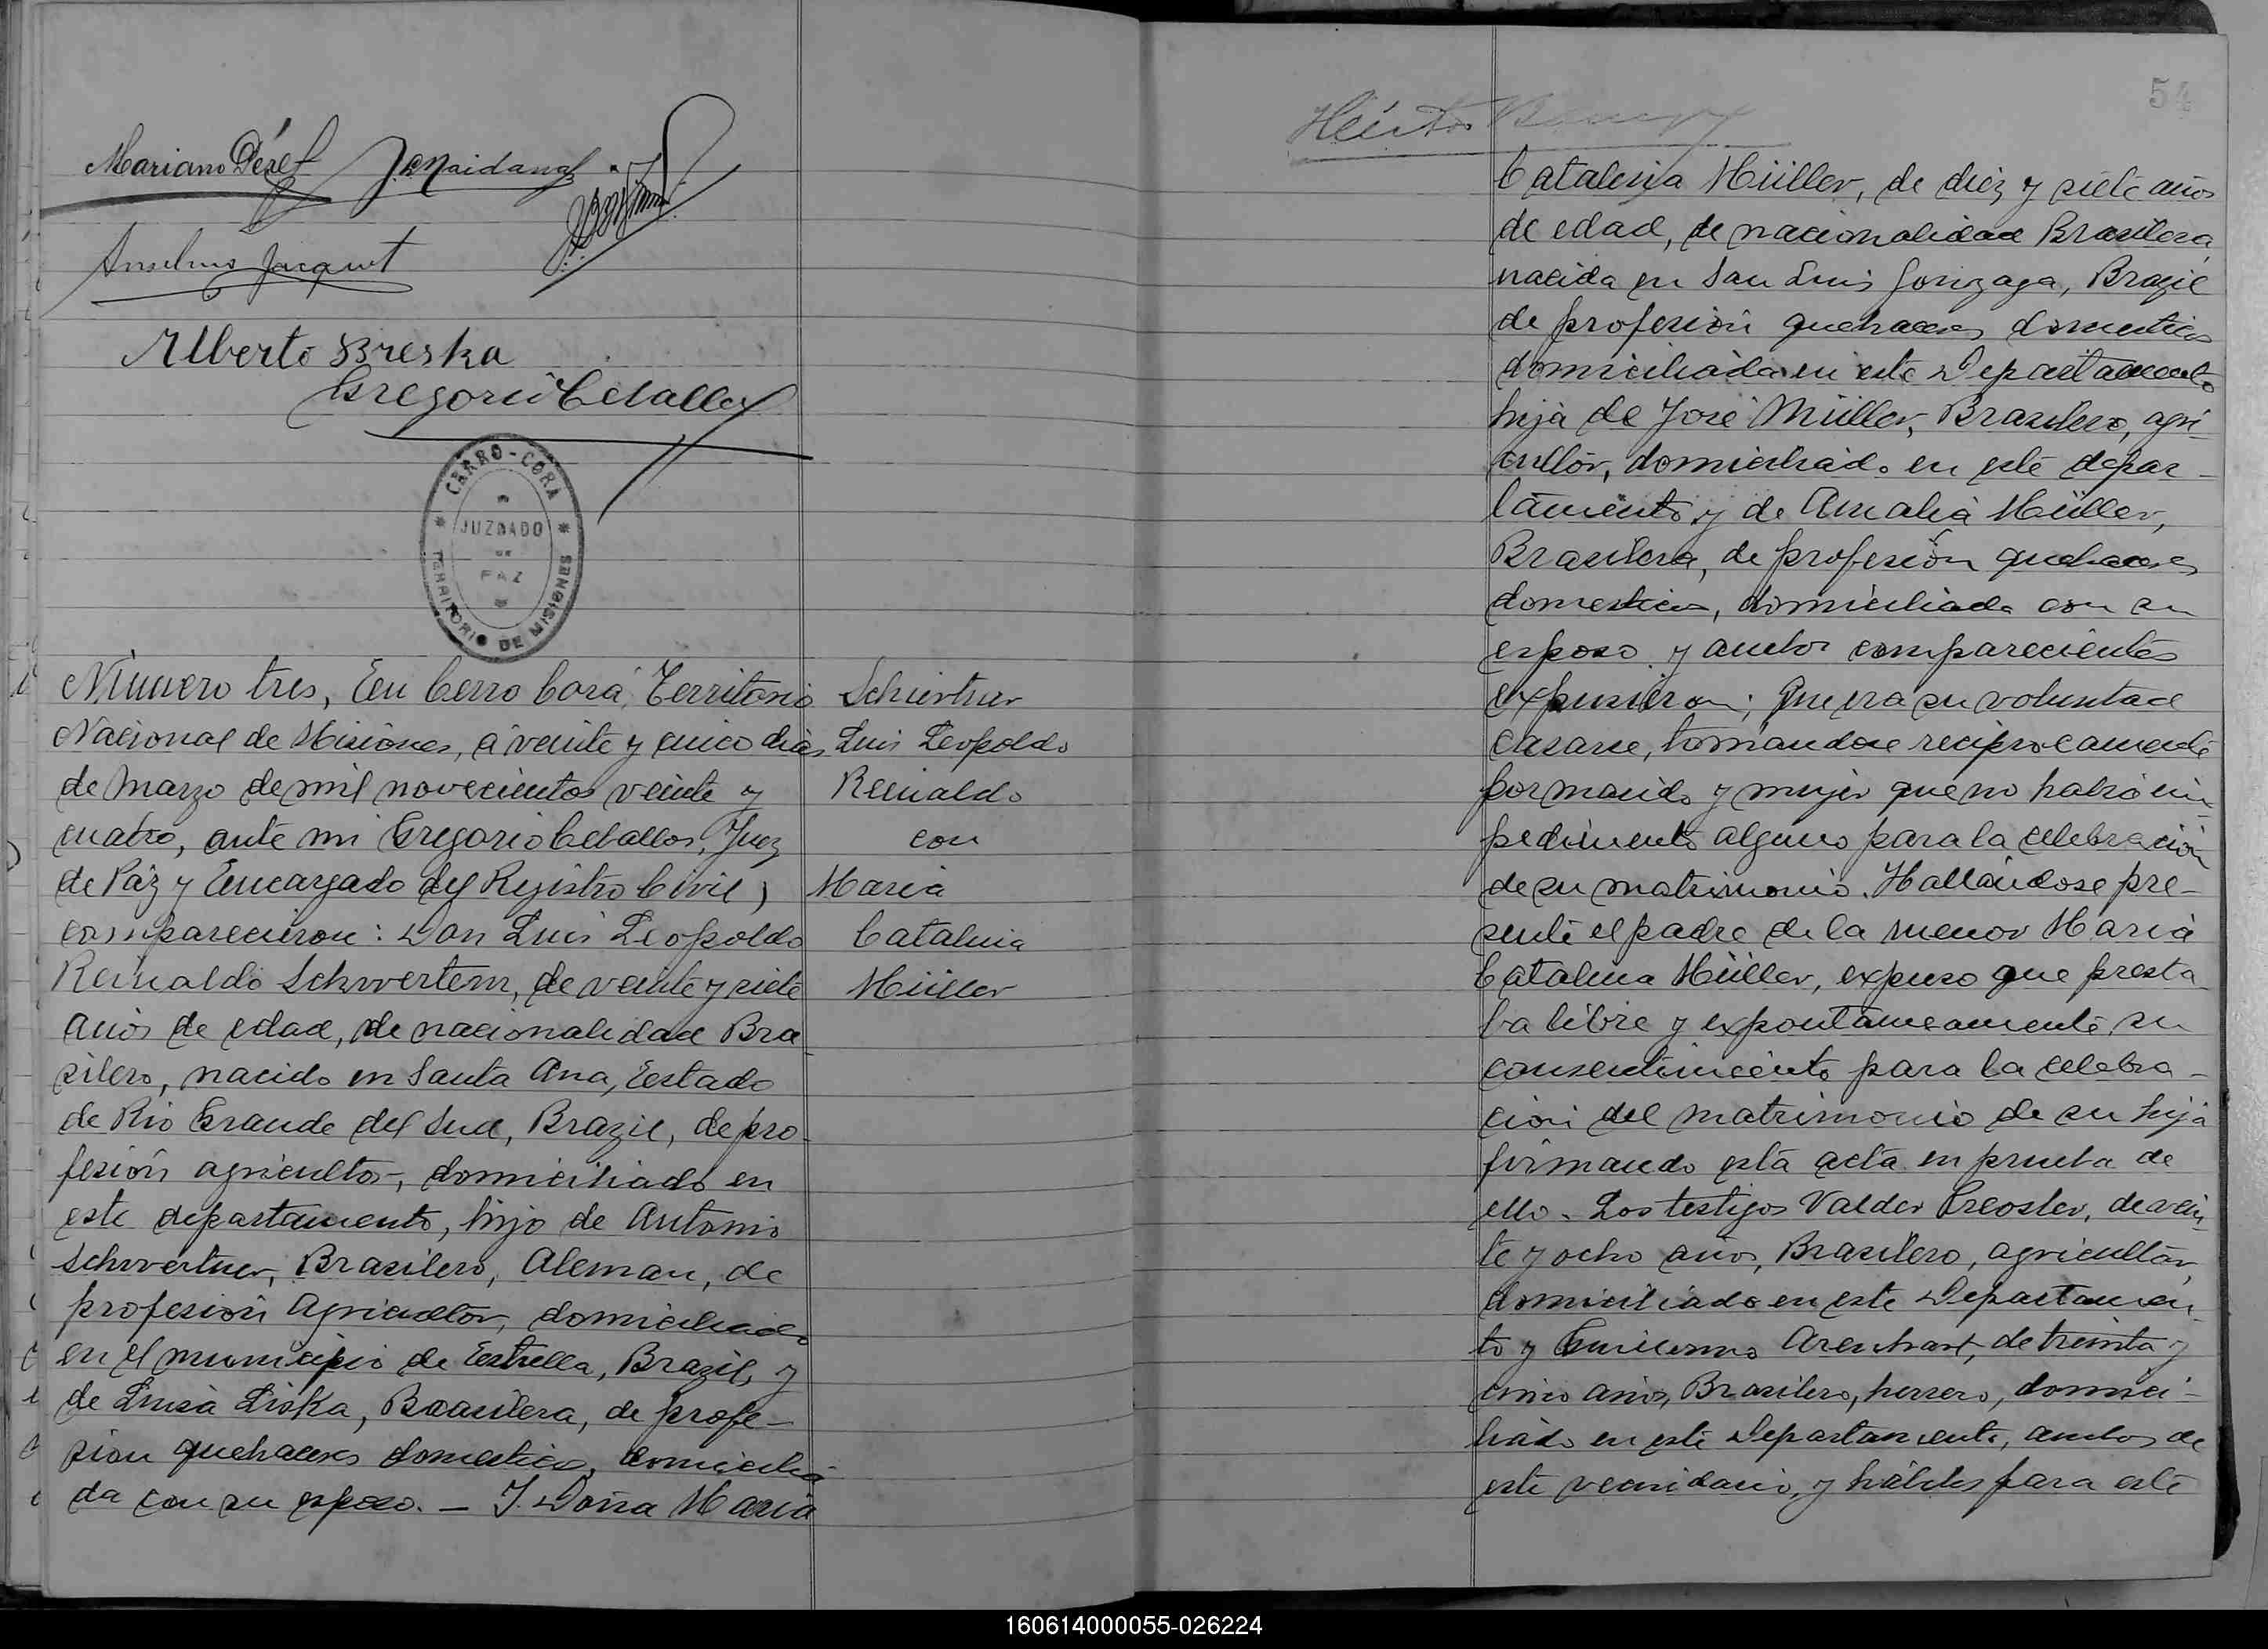 Mariano Pérez J. Naidang
Anselmo Jacquet
Alberto Breska
Gregorio Ceballos
CERRO-CORA
JUZGADO
DE
PAZ
TERRITORIO DE MISIONES
Número tres, En Cerro Corá, Territorio
Nacional de Misiones, á veinte y cinco dias
de Marzo de mil novecientos veinte y
cuatro, ante mi Gregorio Ceballos, Juez
de Paz y Encargado del Registro Civil,
comparecieron: Don Luis Leopoldo
Reinaldo Schwertner, de veinte y siete
años de edad, de nacionalidad Bra
silero, nacido en Santa Ana, Estado
de Rio Grande del Sud, Brazil, de pro-
fesión agricultor, domiciliado en
este departamento, hijo de Antonio
Schwertner, Brasilero, Aleman, de
profesión Agricultor, domiciliado
en el municipio de Estrella, Brazil, y
de Luisa Liska, Brasilera, de profe-
sion quehaceres domesticos, domicilia
da con su esposo. — Y. Doña Maria
Schwertner
Luis Leopoldo
Reinaldo
con
Maria
Catalina
Müller
54
Héctor
Catalina Müller, de diéz y siete años
de edad, de nacionalidad Brasilera,
nacida en San Luis Gonzaga, Brazil
de profesión quehaceres domesticos
domiciliada en este Departamento
hija de José Müller, Brasilero, agri-
cultor, domiciliado en este depar-
tamento y de Amalia Müller,
Brasilera, de profesión quehaceres
domesticos, domiciliada con su
esposo y ambos comparecientes
expusieron; Que era su voluntad
casarse, tomandose reciprocamente
por marido y mujer que no habia im-
pedimento alguno para la celebración
de su matrimonio. Hallándose pre-
sente el padre de la menor Maria
Catalina Müller, expuso que presta
ba libre y expontaneamente su
consentimiento para la celebra-
cion del matrimonio de su hija
firmando esta acta en prueba de
ello. Los testigos Valder Preosler, de vein-
te y ocho años, Brasilero, agricultor,
domiciliado en este Departamen
to y Guillermo Arenhart, de treinta y
cinco años, Brasilero, herrero, domici-
liado en este Departamento, ambos de
este vecindario, y hábiles para este
160614000055-026224